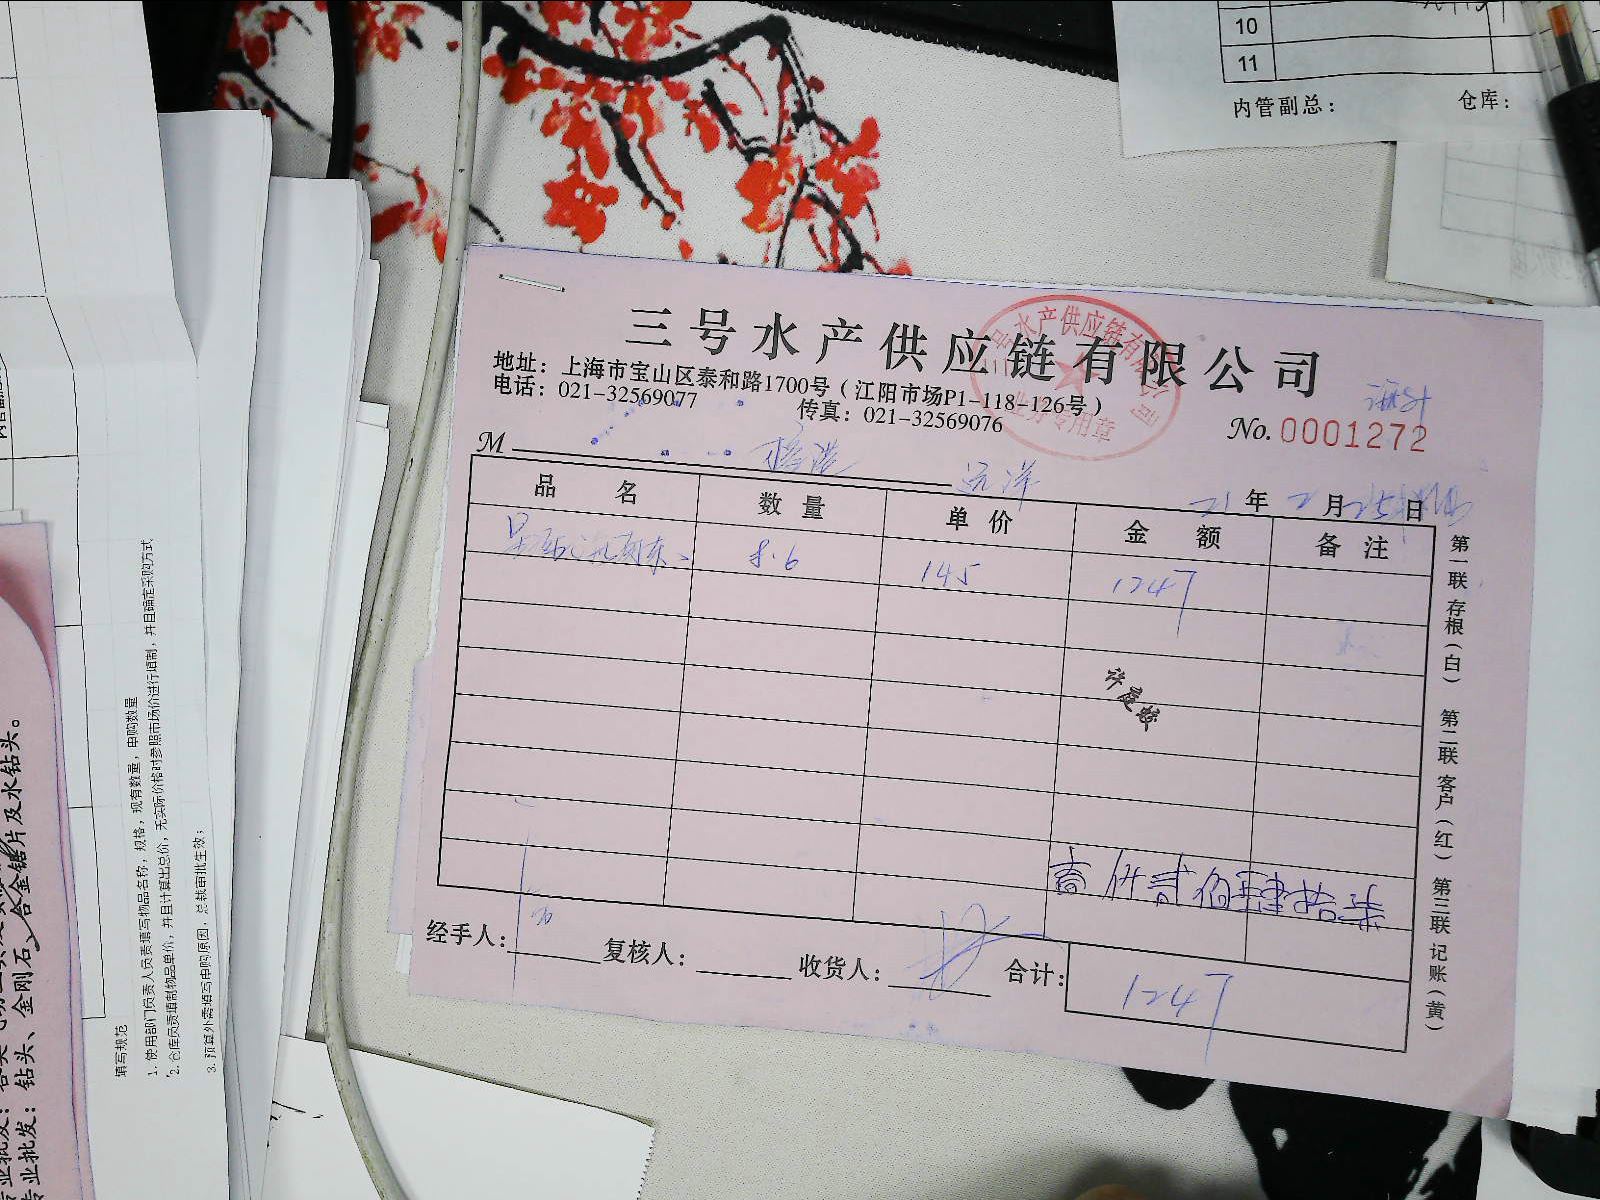 10
11
内管副总： 仓库：
三号水产供应链有限公司
地址：上海市宝山区泰和路1700号（江阳市场P1-118-126号）
电话：021-32569077 传真：021-32569076
三号水产供应链有限公司
业务专用章
No. 0001272
M
远洋
21年2月25日
品名 数量 单价 金额 备注
8.6 145 1247
许庭娇
壹仟贰佰肆拾柒
经手人： 复核人： 收货人： 合计：1247
第一联 存根（白） 第二联 客户（红） 第三联 记账（黄）
填写规范
1. 使用部门负责人员负责填写物品名称，规格，现有数量，申购数量
2. 仓库负责填制物品单价，并且计算出总价，无实际价格时参照市场价进行填制，并且确定采购方式
3. 预算外需填写申购原因，总裁审批生效；
钻头、金刚石、合金锯片及水钻头。